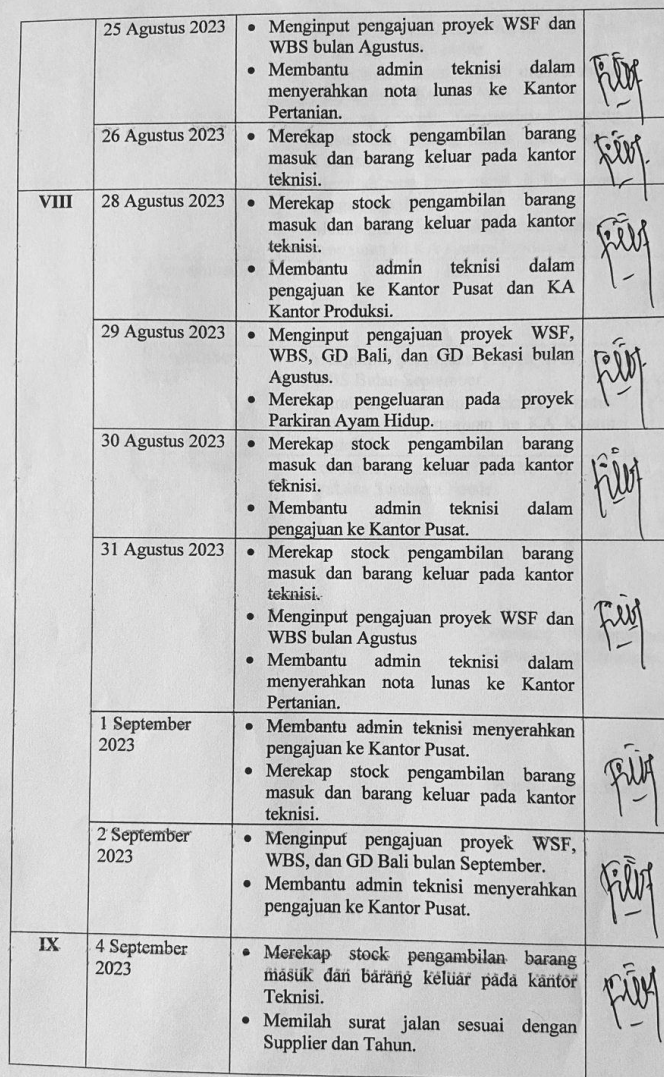 25 Agustus 2023
• Menginput pengajuan proyek WSF dan
WBS bulan Agustus.
• Membantu admin teknisi dalam
menyerahkan nota lunas ke Kantor
Pertanian.
26 Agustus 2023
• Merekap stock pengambilan barang
masuk dan barang keluar pada kantor
teknisi.
VIII
28 Agustus 2023
• Merekap stock pengambilan barang
masuk dan barang keluar pada kantor
teknisi.
• Membantu admin teknisi dalam
pengajuan ke Kantor Pusat dan KA
Kantor Produksi.
29 Agustus 2023
• Menginput pengajuan proyek WSF,
WBS, GD Bali, dan GD Bekasi bulan
Agustus.
• Merekap pengeluaran pada proyek
Parkiran Ayam Hidup.
30 Agustus 2023
• Merekap stock pengambilan barang
masuk dan barang keluar pada kantor
teknisi.
• Membantu admin teknisi dalam
pengajuan ke Kantor Pusat.
31 Agustus 2023
• Merekap stock pengambilan barang
masuk dan barang keluar pada kantor
teknisi.
• Menginput pengajuan proyek WSF dan
WBS bulan Agustus
• Membantu admin teknisi dalam
menyerahkan nota lunas ke Kantor
Pertanian.
1 September
2023
• Membantu admin teknisi menyerahkan
pengajuan ke Kantor Pusat.
• Merekap stock pengambilan barang
masuk dan barang keluar pada kantor
teknisi.
2 September
2023
• Menginput pengajuan proyek WSF,
WBS, dan GD Bali bulan September.
• Membantu admin teknisi menyerahkan
pengajuan ke Kantor Pusat.
IX
4 September
2023
• Merekap stock pengambilan barang
masuk dan barang keluar pada kantor
Teknisi.
• Memilah surat jalan sesuai dengan
Supplier dan Tahun.